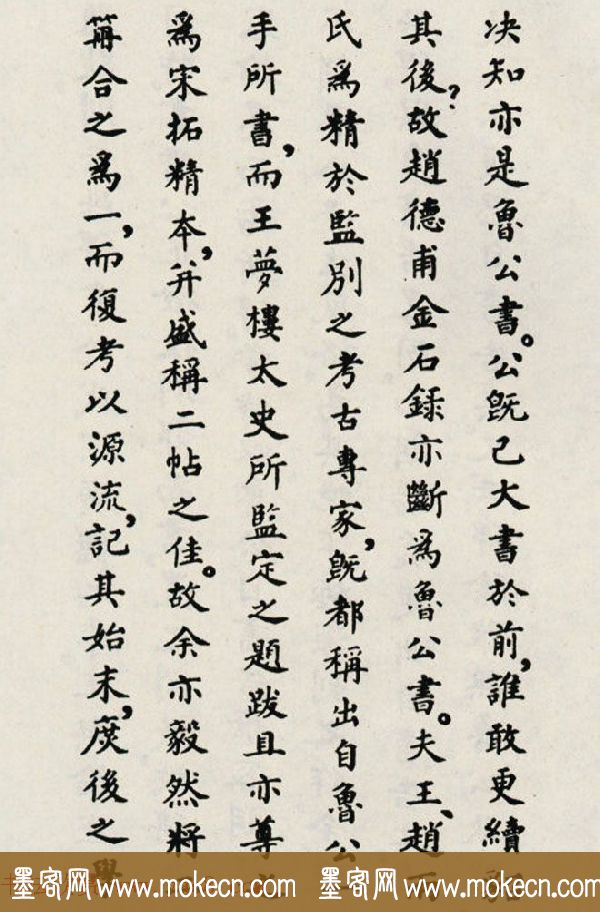 决知亦是魯公書。公既已大書於前,誰敢更續
其後?故趙德甫金石錄亦斷爲魯公書。夫王、趙
氏爲精於監別之考古專家,既都稱出自魯公
手所書,而王夢樓太史所監定之題跋且亦尊
爲宋拓精本,并盛稱二帖之佳。故余亦毅然將
再合之爲一,而復考以源流,記其始末,庶後之
墨客网www.mokecn.com 墨客网www.mokecn.com